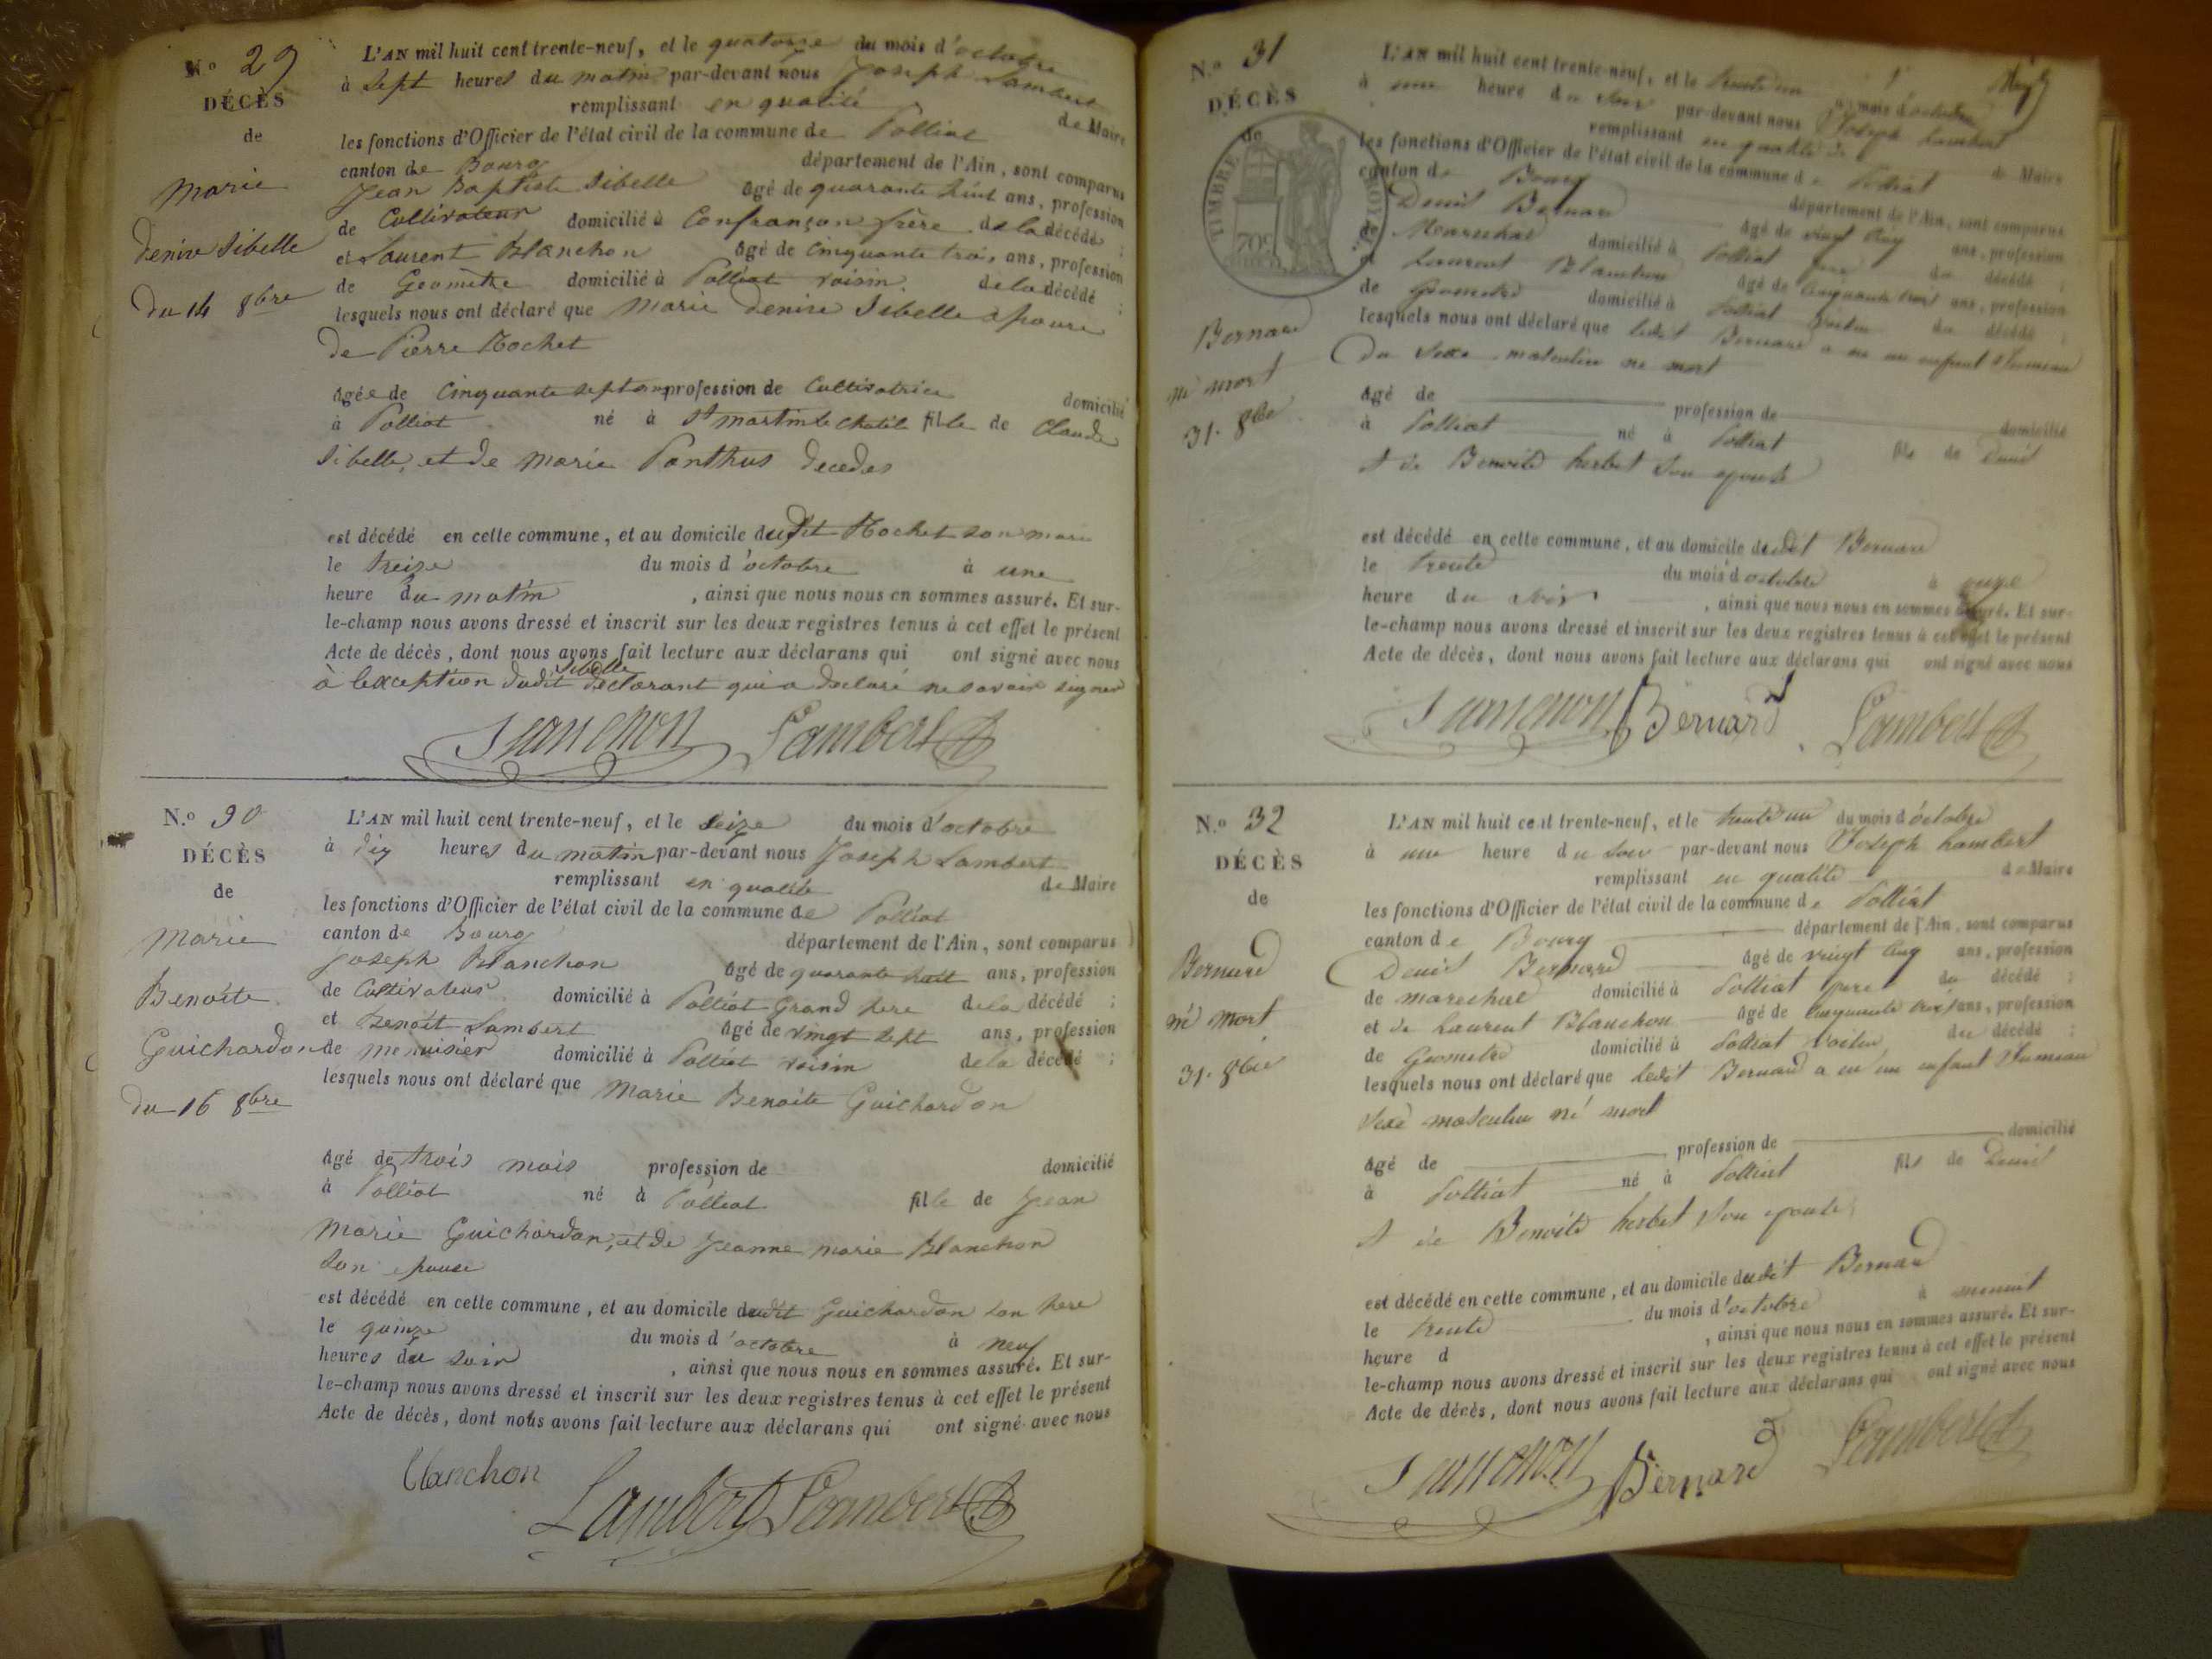 N.o 29
DÉCÈS
de
Marie
denise Sibelle
du 14 8bre
L'AN mil huit cent trente-neuf, et le quatorze du mois d'octobre
à sept heures du matin par-devant nous Joseph Lambert
remplissant en qualité de Maire
les fonctions d'Officier de l'état civil de la commune de Polliat
canton de Bourg département de l'Ain, sont comparus
Jean Baptiste Sibelle âgé de quarante huit ans, profession
de Cultivateur domicilié à Confrançon frère de la décédée ;
et Laurent Blanchon âgé de cinquante trois ans, profession
de Geomètre domicilié à Polliat voisin de la décédé ;
lesquels nous ont déclaré que Marie denise Sibelle epouse
de Pierre Rochet
âgée de cinquante sept ans profession de Cultivatrice domicilié
à Polliat né à St martin le chatel fille de Claude
Sibelle, et de Marie Panthus decedes
est décédé en cette commune, et au domicile dudit Rochet son mari
le treize du mois d'octobre à une
heure du matin , ainsi que nous nous en sommes assuré. Et sur-
le-champ nous avons dressé et inscrit sur les deux registres tenus à cet effet le présent
Acte de décès, dont nous avons fait lecture aux déclarans qui ont signé avec nous
Sibelle
à l'exception dudit declarant qui a declaré ne savoir signer
Blanchon Lambert
N.o 30
DÉCÈS
de
Marie
Benoite
Guichardon
du 16 8bre
L'AN mil huit cent trente-neuf, et le seize du mois d'octobre
à dix heures du matin par-devant nous Joseph Lambert
remplissant en qualité de Maire
les fonctions d'Officier de l'état civil de la commune de Polliat
canton de Bourg département de l'Ain, sont comparus
Joseph Blanchon âgé de quarante huit ans, profession
de Cultivateur domicilié à Polliat Grand pere de la décédé ;
et Benoit Lambert âgé de vingt sept ans, profession
de menuisier domicilié à Polliat voisin de la décédé ;
lesquels nous ont déclaré que Marie Benoite Guichardon
âgé de trois mois profession de domicilié
à Polliat né à Polliat fille de Jean
Marie Guichardon, et de Jeanne marie Blanchon
son epouse
est décédé en cette commune, et au domicile dudit Guichardon son pere
le quinze du mois d'octobre à neuf
heures du soir , ainsi que nous nous en sommes assuré. Et sur-
le-champ nous avons dressé et inscrit sur les deux registres tenus à cet effet le présent
Acte de décès, dont nous avons fait lecture aux déclarans qui ont signé avec nous
Blanchon
Lambert Lambert
N.o 31
DÉCÈS
de
TIMBRE ROYAL
70c
Bernard
né mort
31. 8bre
L'AN mil huit cent trente-neuf, et le trente un du mois d'octobre
à une heure du soir par-devant nous Joseph Lambert
remplissant en qualité de Maire
les fonctions d'Officier de l'état civil de la commune de Polliat
canton de Bourg département de l'Ain, sont comparus
Denis Bernard âgé de vingt cinq ans, profession
de Marechal domicilié à Polliat pere du décédé ;
et Laurent Blanchon âgé de cinquante trois ans, profession
de Geometre domicilié à Polliat voisin du décédé ;
lesquels nous ont déclaré que ledit Bernard a eu un enfant Jumeau
du sexe masculin né mort
âgé de profession de domicilié
à Polliat né à Polliat fils de Denis
et de Benoite herbet son epouse
est décédé en cette commune, et au domicile dudit Bernard
le trente du mois d'octobre à onze
heure du soir , ainsi que nous nous en sommes assuré. Et sur-
le-champ nous avons dressé et inscrit sur les deux registres tenus à cet effet le présent
Acte de décès, dont nous avons fait lecture aux déclarans qui ont signé avec nous
Blanchon Bernard Lambert
N.o 32
DÉCÈS
de
Bernard
né mort
31. 8bre
L'AN mil huit cent trente-neuf, et le trente un du mois d'octobre
à une heure du soir par-devant nous Joseph Lambert
remplissant en qualité de Maire
les fonctions d'Officier de l'état civil de la commune de Polliat
canton de Bourg département de l'Ain, sont comparus
Denis Bernard âgé de vingt cinq ans, profession
de marechal domicilié à Polliat pere du décédé ;
et de Laurent Blanchon âgé de cinquante trois ans, profession
de Geometre domicilié à Polliat voisin du décédé ;
lesquels nous ont déclaré que ledit Bernard a eu un enfant Jumeau
sexe masculin né mort
âgé de profession de domicilié
à Polliat né à Polliat fils de Denis
et de Benoite herbet son epouse
est décédé en cette commune, et au domicile dudit Bernard
le trente du mois d'octobre à minuit
heure d , ainsi que nous nous en sommes assuré. Et sur-
le-champ nous avons dressé et inscrit sur les deux registres tenus à cet effet le présent
Acte de décès, dont nous avons fait lecture aux déclarans qui ont signé avec nous
Blanchon Bernard Lambert